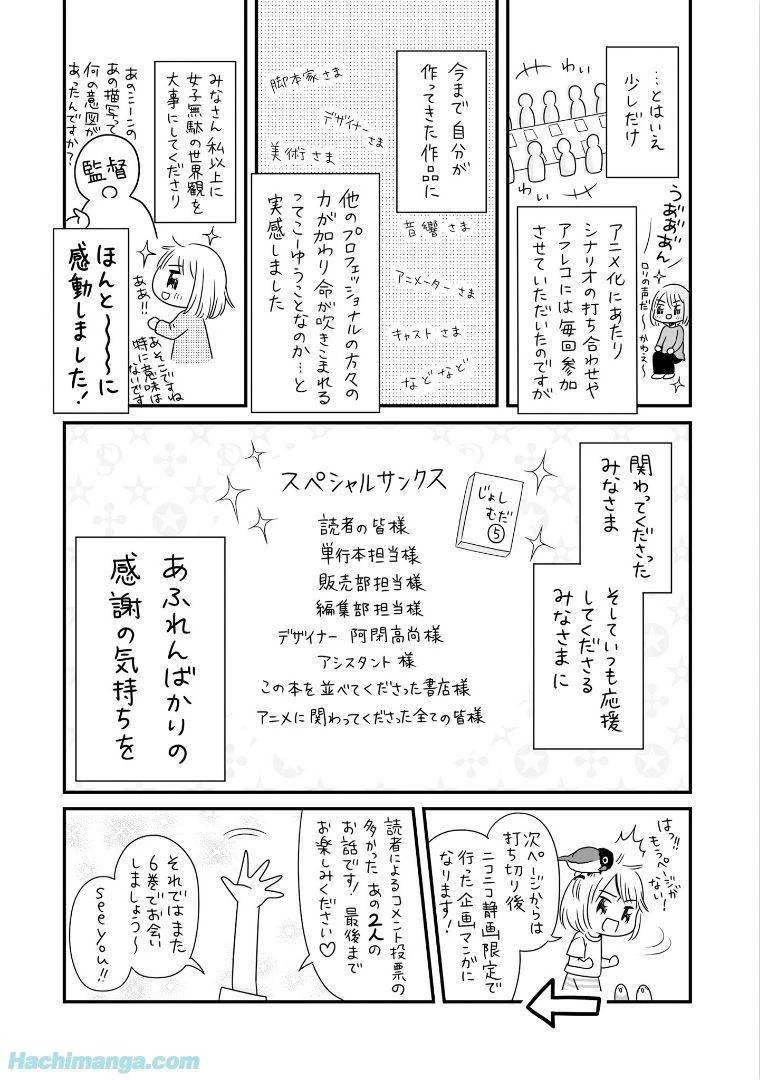 …とはいえ
少しだけ
わい
わい
アニメ化にあたり
シナリオの打ち合わせや
アフレコには毎回参加
させていただいたのですが
うあ゛あ゛あ゛ん
ロリの声だ～かわえ～
今まで自分が
作ってきた作品に
脚本家さま
デザイナーさま
美術さま
音響さま
アニメーターさま
キャストさま
などなど
他のプロフェッショナルの方々の
力が加わり命が吹きこまれる
ってこーゆうことなのか…と
実感しました
みなさん私以上に
女子無駄の世界観を
大事にしてくださり
あのシーンの
あの描写って
何の意図が
あったんですか?
監督
ああ!!
あそこですね
特に意味は
ないです
ほんと～～～に
感動しました!
関わってくださった
みなさま
そしていつも応援
してくださる
みなさまに
スペシャルサンクス
じょし
むだ
⑤
読者の皆様
単行本担当様
販売部担当様
編集部担当様
デザイナー 阿閉高尚様
アシスタント様
この本を並べてくださった書店様
アニメに関わってくださった全ての皆様
あふれんばかりの
感謝の気持ちを
はっ!!
もうページが
ない!
次ページからは
打ち切り後
ニコニコ静画限定で
行った企画マンガに
なります!
読者によるコメント投票の
多かったあの2人の
お話です!最後まで
お楽しみください♡
それではまた
6巻でお会い
しましょう～
see you!!
Hachimanga.com